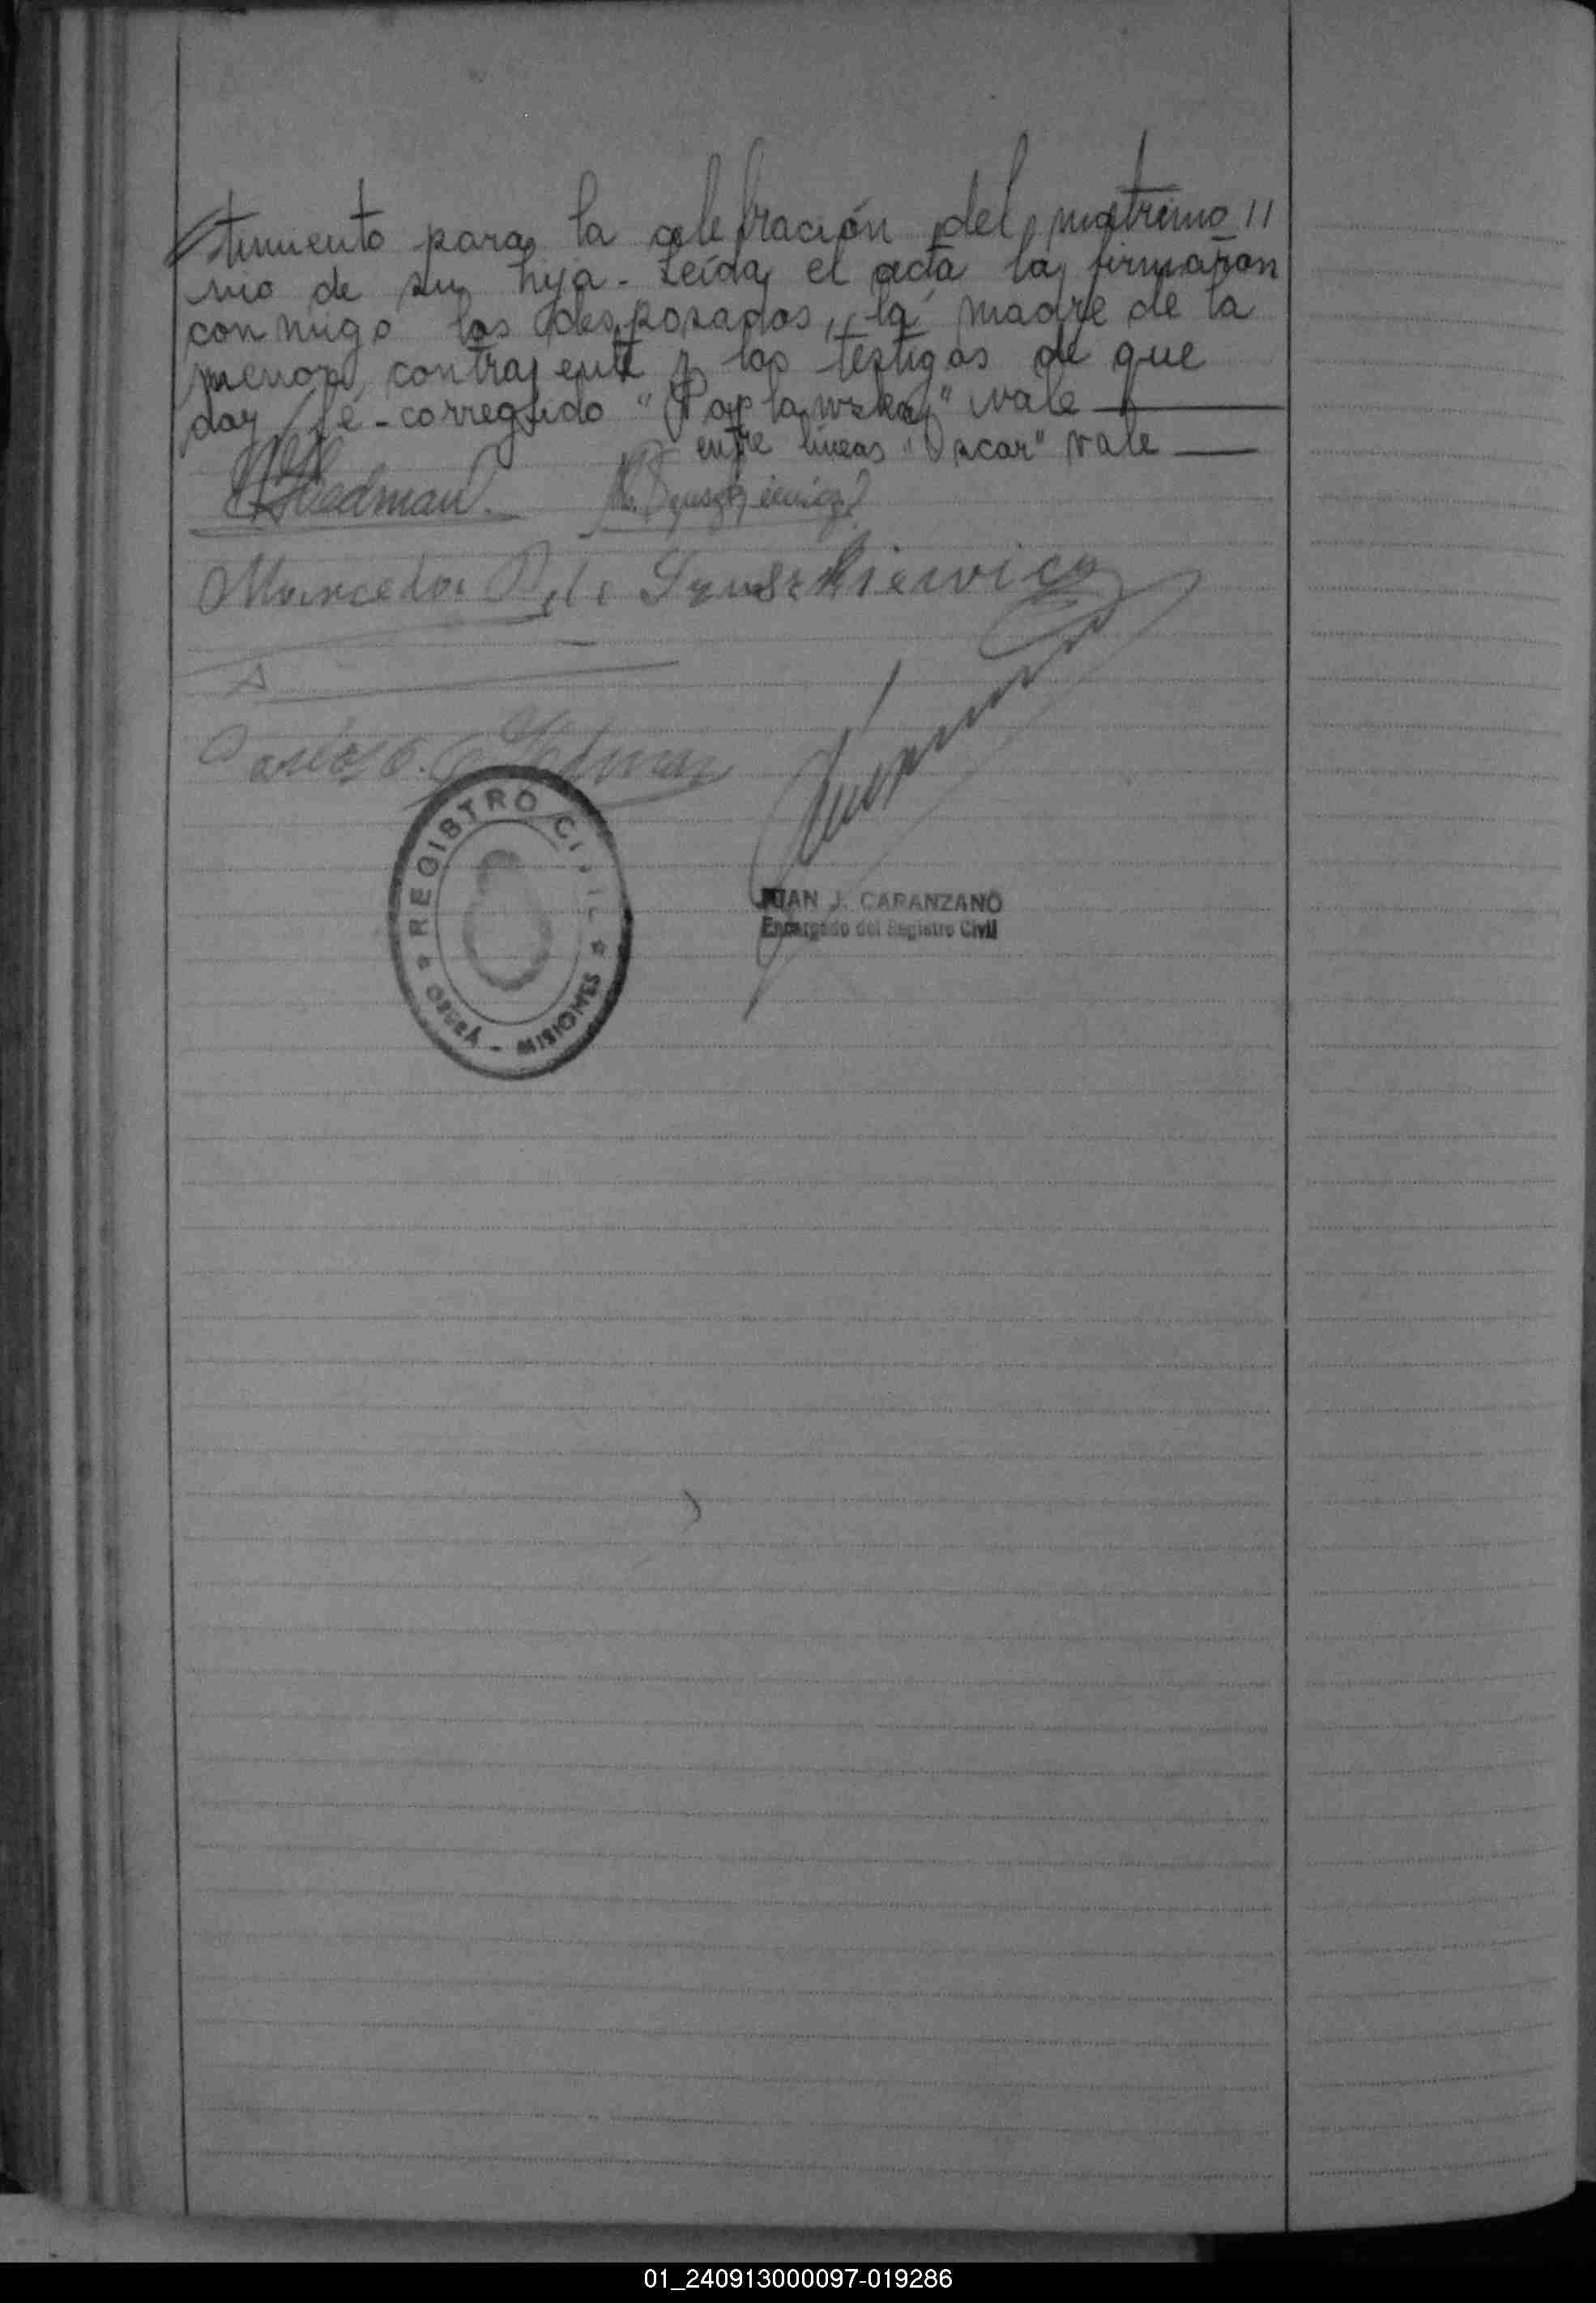 timiento para la celebración del matrimo //
nio de su hija - Leída el acta la firmaron
conmigo los desposados, la madre de la
menor contrajente y los testigos de que
doy fé - corregido "Poplawska" vale
entre líneas "Oscar" vale
Friedman
Szuszkiewicz
P. de Szuszkiewicz
Carlos
REGISTRO CIVIL
OBERÁ - MISIONES
JUAN J. CARANZANO
Encargado del Registro Civil
01_240913000097-019286